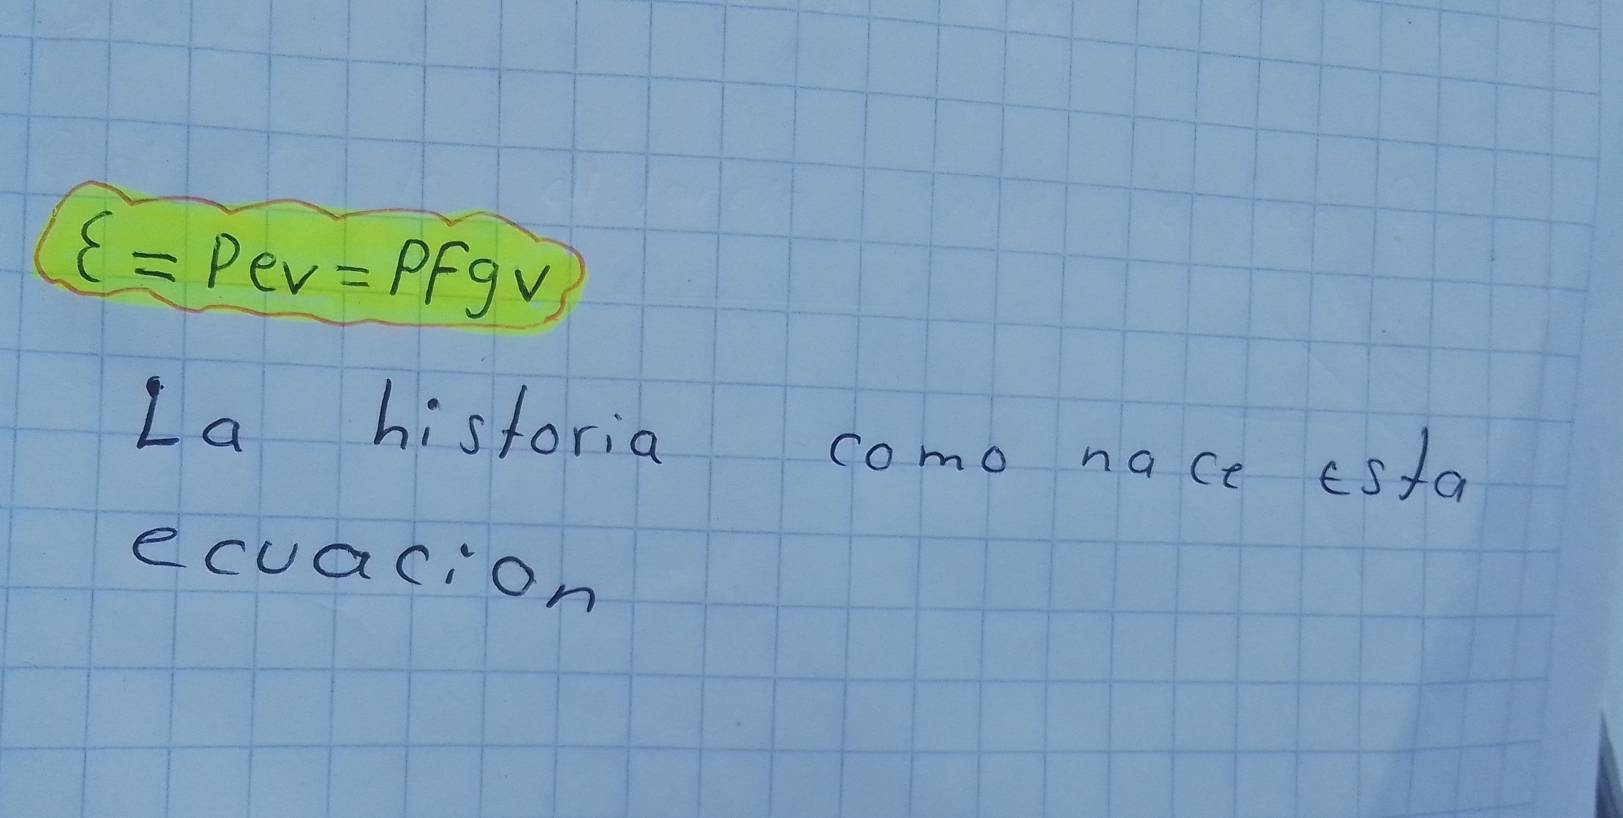 ε = Pev = PFgv
La historia como nace esta
ecuacion